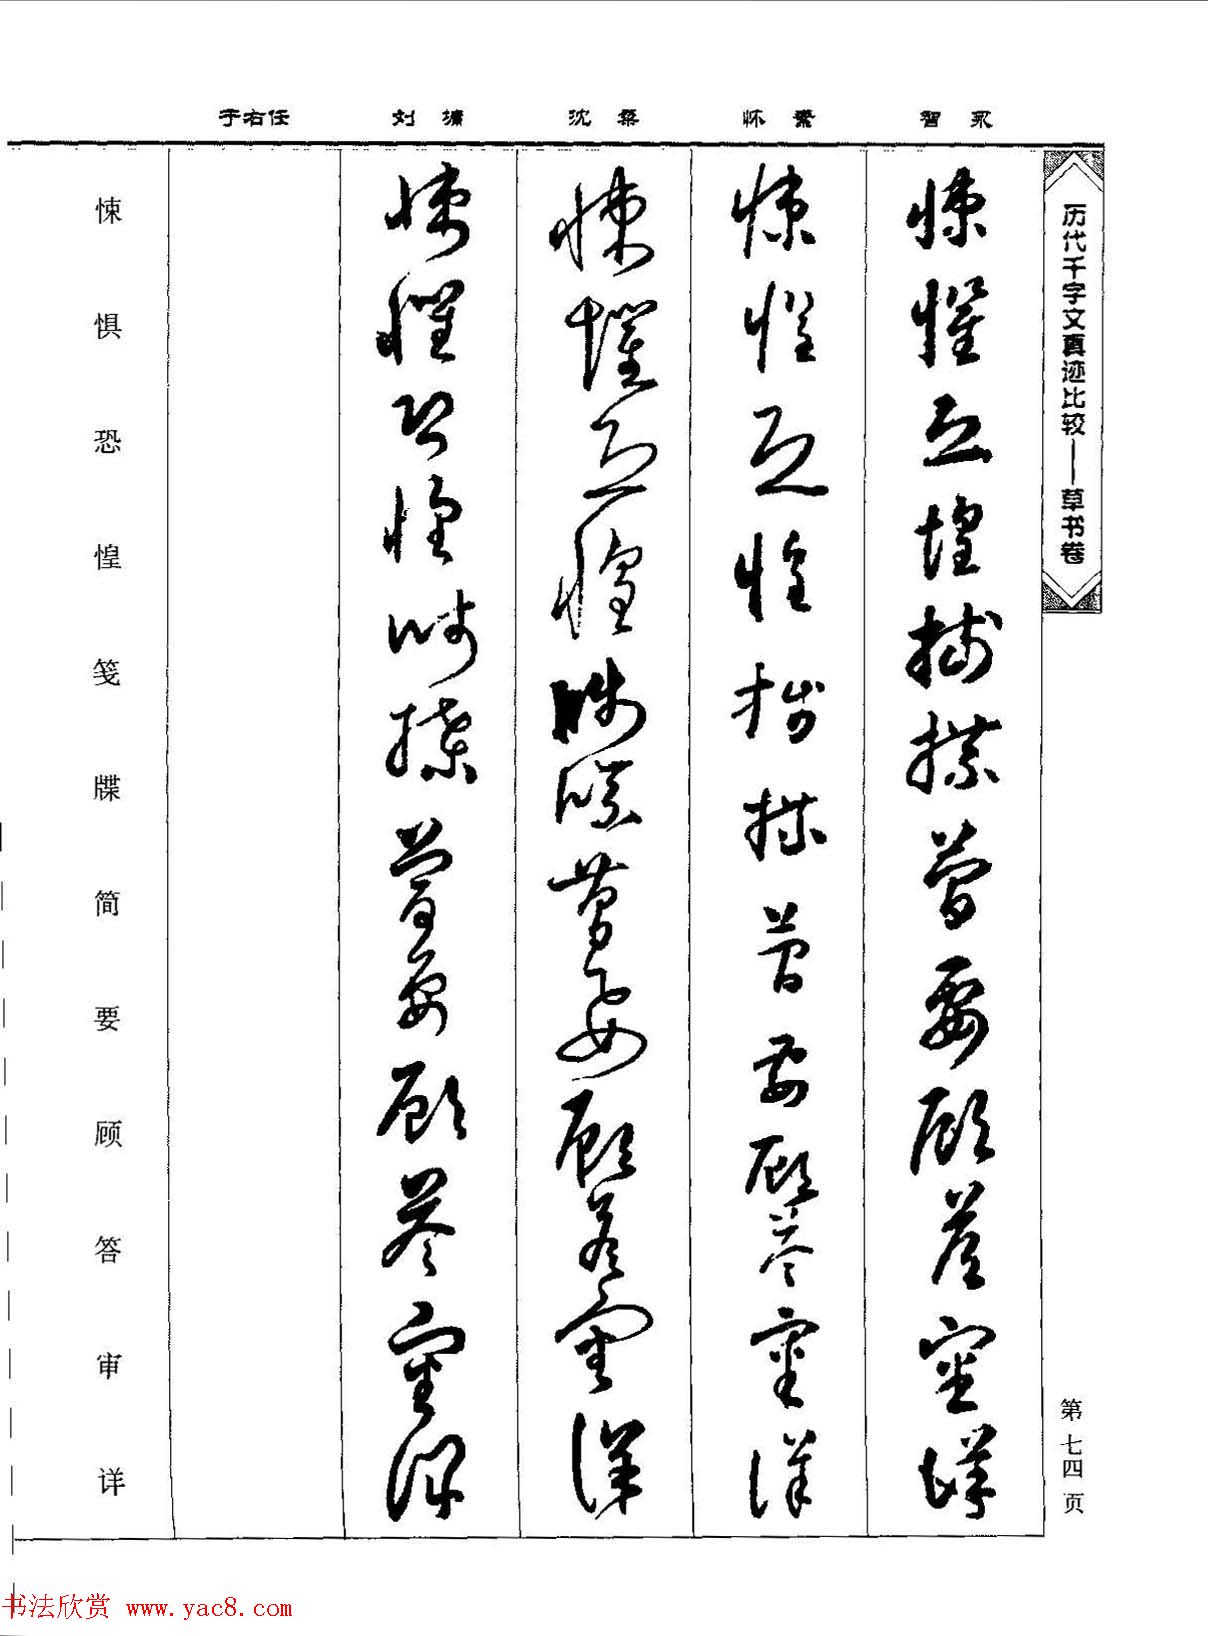 智永
怀素
沈粲
刘墉
于右任
历代千字文真迹比较——草书卷
第七四页
悚惧恐惶笺牒简要顾答审详
悚惧恐惶笺牒简要顾答审详
悚惧恐惶笺牒简要顾答审详
悚惧恐惶笺牒简要顾答审详
悚惧恐惶笺牒简要顾答审详
书法欣赏 www.yac8.com